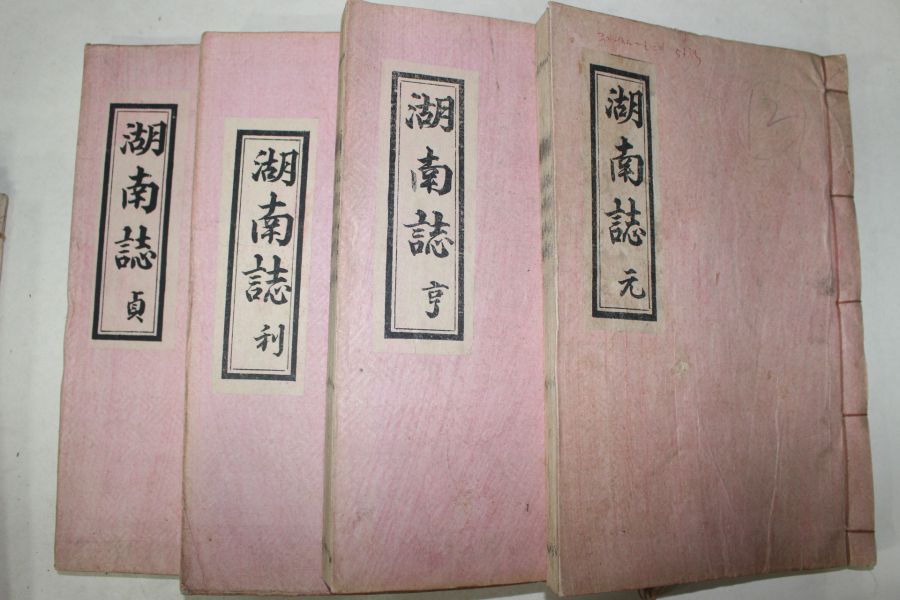 湖南誌 元
湖南誌 亨
湖南誌 利
湖南誌 貞
2